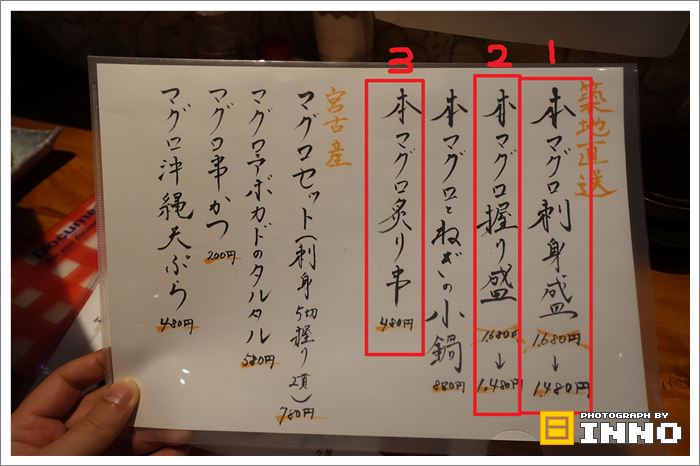 1
2
3
築地直送
本マグロ刺身盛 1,680円→1,480円
本マグロ握り盛 1,680円→1,480円
本マグロとねぎの小鍋 880円
本マグロ炙り串 480円
宮古産
マグロセット(刺身5切握り2貫) 780円
マグロアボカドのタルタル 580円
マグロ串かつ 200円
マグロ沖縄天ぷら 480円
Docume
PHOTOGRAPH BY
INNO